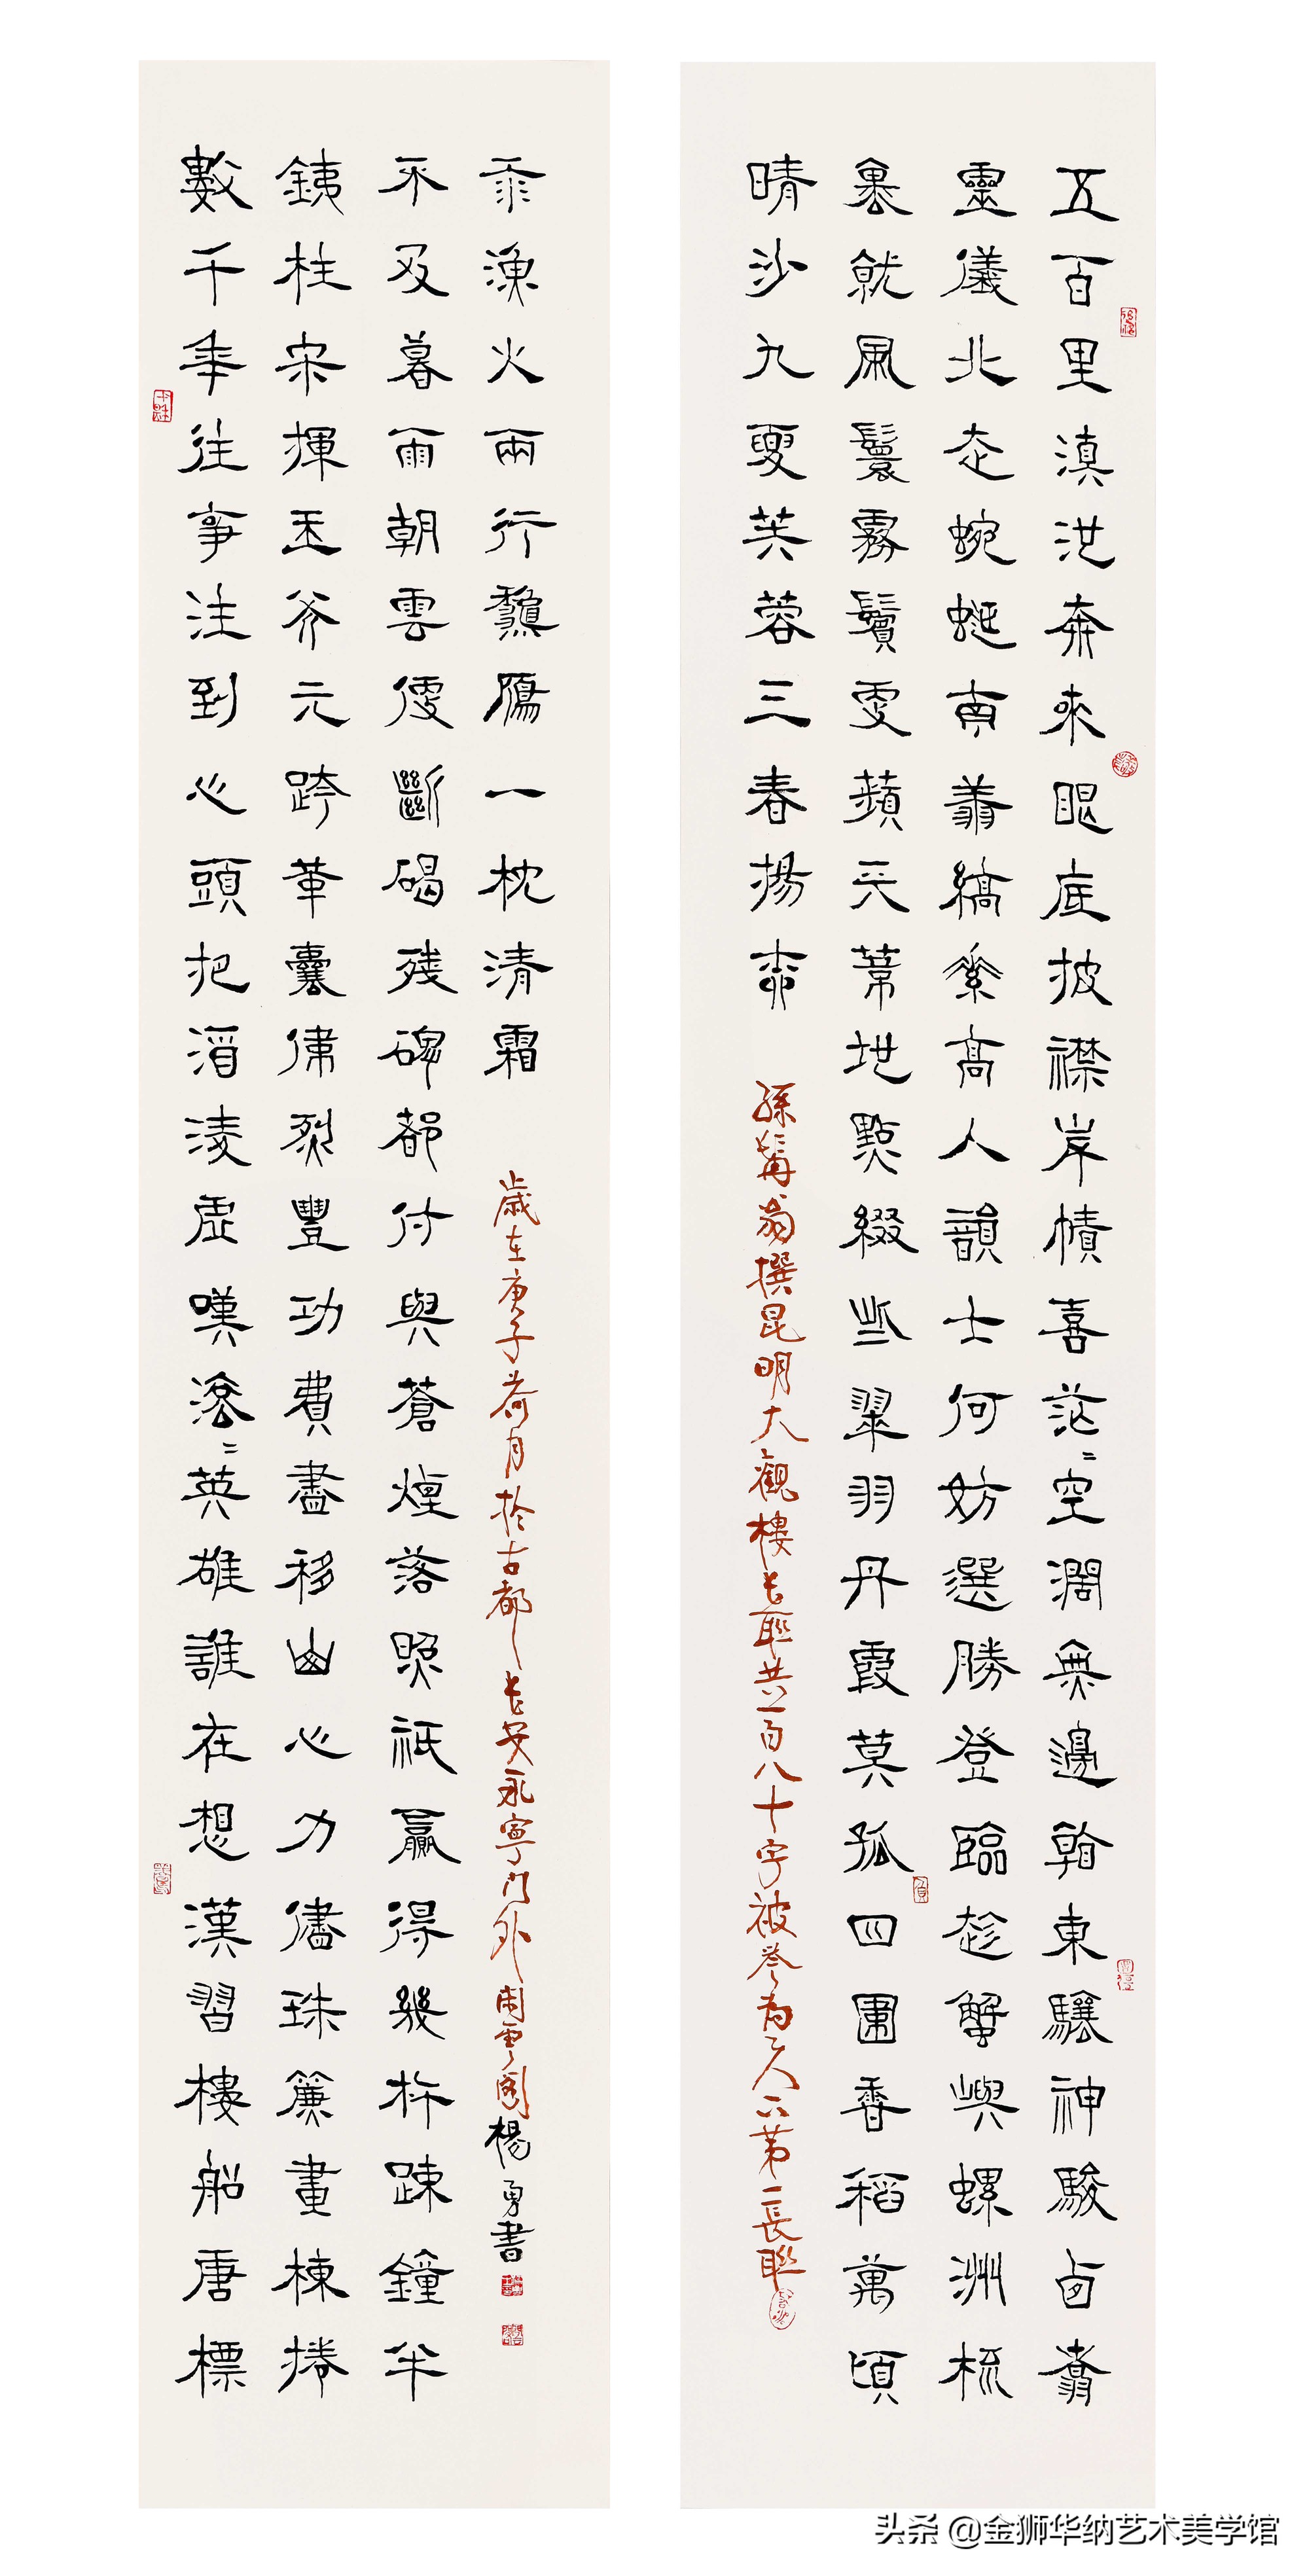 五百里滇池奔來眼底披襟岸幘喜茫〻空闊無邊看東驤神駿西翥
靈儀北走蜿蜒南翔縞素高人韻士何妨選勝登臨趁蟹嶼螺洲梳
裹就風鬟霧鬢更蘋天葦地點綴些翠羽丹霞莫孤四圍香稻萬頃
晴沙九夏芙蓉三春揚柳
孫髯翁撰昆明大觀樓長聯共一百八十字被譽為天下第一長聯
數千年往事注到心頭把酒凌虛嘆滾〻英雄誰在想漢習樓船唐標
銕柱宋揮玉斧元跨革囊偉烈豐功費盡移山心力儘珠簾畫棟捲
不及暮雨朝雲便斷碣殘碑都付與蒼煙落照衹贏得幾杵疎鐘半
江漁火兩行秋鴈一枕清霜
歲在庚子荷月於古都長安永寧門外閑雲閣楊勇書
头条 @金狮华纳艺术美学馆